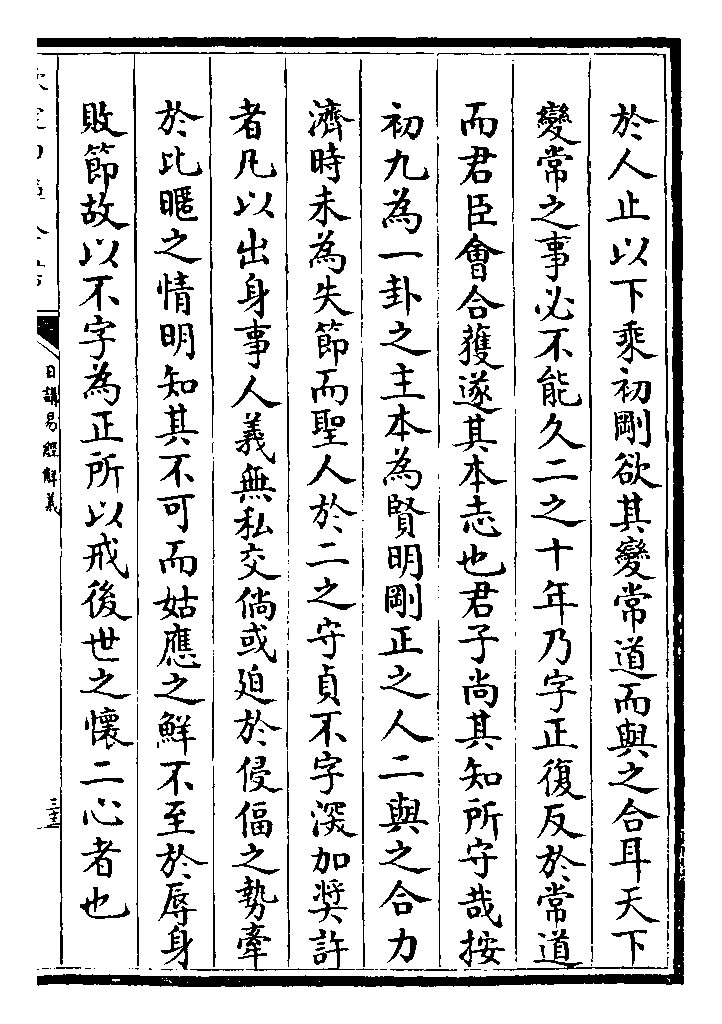 於人止以下乘初剛欲其變常道而與之合耳天下
變常之事必不能久二之十年乃字正復反於常道
而君臣會合獲遂其本志也君子尚其知所守哉按
初九為一卦之主本為賢明剛正之人二與之合力
濟時未為失節而聖人於二之守貞不字深加奬許
者凡以出身事人義無私交倘或廹於侵偪之勢牽
於比暱之情明知其不可而姑應之鮮不至於辱身
敗節故以不字為正所以戒後世之懷二心者也
日講易經解義